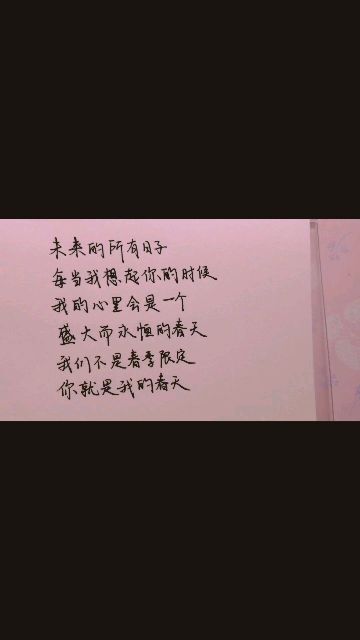 未来的所有日子
每当我想起你的时候
我的心里会是一个
盛大而永恒的春天
我们不是春季限定
你就是我的春天